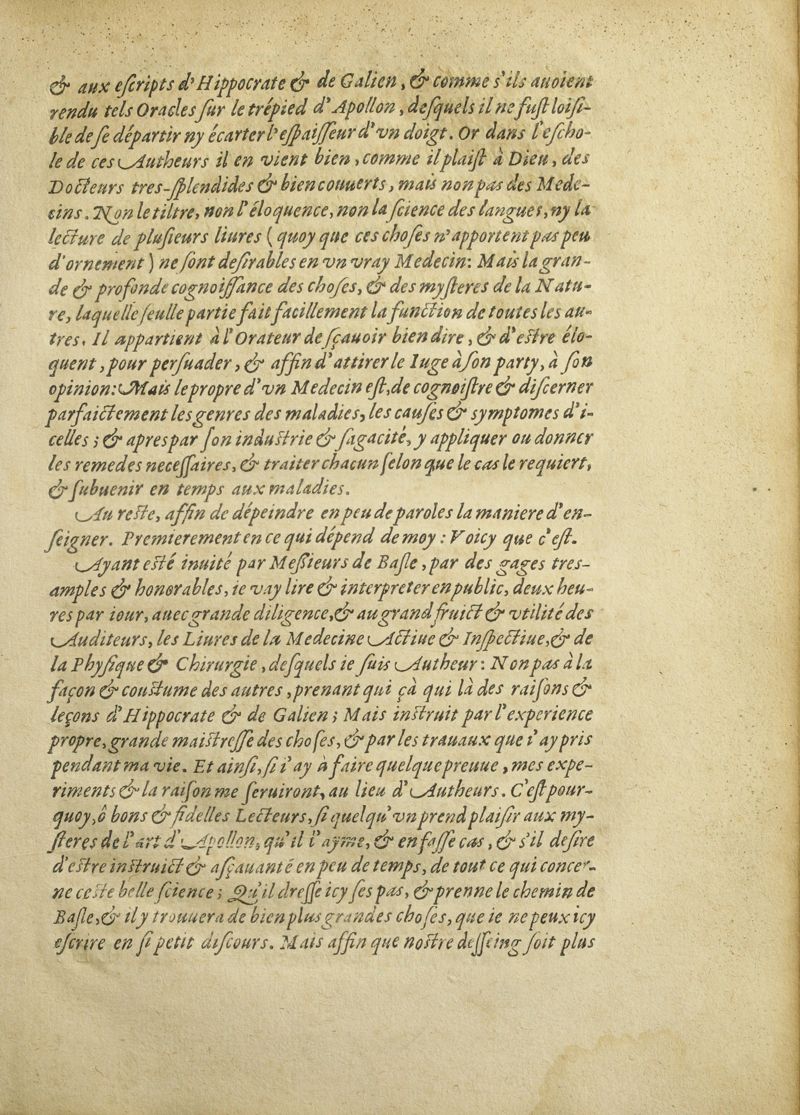 & aux eſcripts d'Hippocrate & de Galien, & comme s'ils auoient
rendu tels Oracles ſur le trépied d'Apollon, deſquels il ne fuſt loiſi-
ble de ſe départir ny écarter l'eſpaiſſeur d'vn doigt. Or dans l'eſcho-
le de ces Autheurs il en vient bien, comme il plaiſt à Dieu, des
Docteurs tres-ſplendides & bien couuerts, mais non pas des Mede-
cins. Non le tiltre, non l'éloquence, non la ſcience des langues, ny la
lecture de pluſieurs liures (quoy que ces choſes n'apportent pas peu
d'ornement) ne ſont deſirables en vn vray Medecin: Mais la gran-
de & profonde cognoiſſance des choſes, & des myſteres de la Natu-
re, laquelle ſeulle partie fait facillement la function de toutes les au-
tres. Il appartient à l'Orateur de ſçauoir bien dire, & d'eſtre élo-
quent, pour perſuader, & affin d'attirer le Iuge à ſon party, à ſon
opinion: Mais le propre d'vn Medecin eſt, de cognoiſtre & diſcerner
parfaictement les genres des maladies, les cauſes & symptomes d'i-
celles; & apres par ſon induſtrie & ſagacité, y appliquer ou donner
les remedes neceſſaires, & traiter chacun ſelon que le cas le requiert,
& ſubuenir en temps aux maladies.
Au reſte, affin de dépeindre en peu de paroles la maniere d'en-
ſeigner. Premierement en ce qui dépend de moy: Voicy que c'eſt.
Ayant eſté inuité par Meſsieurs de Baſle, par des gages tres-
amples & honorables, ie vay lire & interpreter en public, deux heu-
res par iour, auec grande diligence, & au grand fruict & vtilité des
Auditeurs, les Liures de la Medecine Actiue & Inſpectiue, & de
la Phyſique & Chirurgie, deſquels ie ſuis Autheur: Non pas à la
façon & couſtume des autres, prenant qui çà qui là des raiſons &
leçons d'Hippocrate & de Galien; Mais inſtruit par l'experience
propre, grande maiſtreſſe des choſes, & par les trauaux que i'ay pris
pendant ma vie. Et ainſi, ſi i'ay à faire quelque preuue, mes expe-
riments & la raiſon me ſeruiront, au lieu d'Autheurs. C'eſt pour-
quoy, ô bons & fidelles Lecteurs, ſi quelqu'vn prend plaiſir aux my-
ſteres de l'art d'Apollon, qu'il l'ayme, & en faſſe cas, & s'il deſire
d'eſtre inſtruict & aſçauanté en peu de temps, de tout ce qui concer-
ne ceſte belle ſcience; Qu'il dreſſe icy ſes pas, & prenne le chemin de
Baſle, & il y trouuera de bien plus grandes choſes, que ie ne peux icy
eſcrire en ſi petit diſcours. Mais affin que noſtre deſſeing ſoit plus